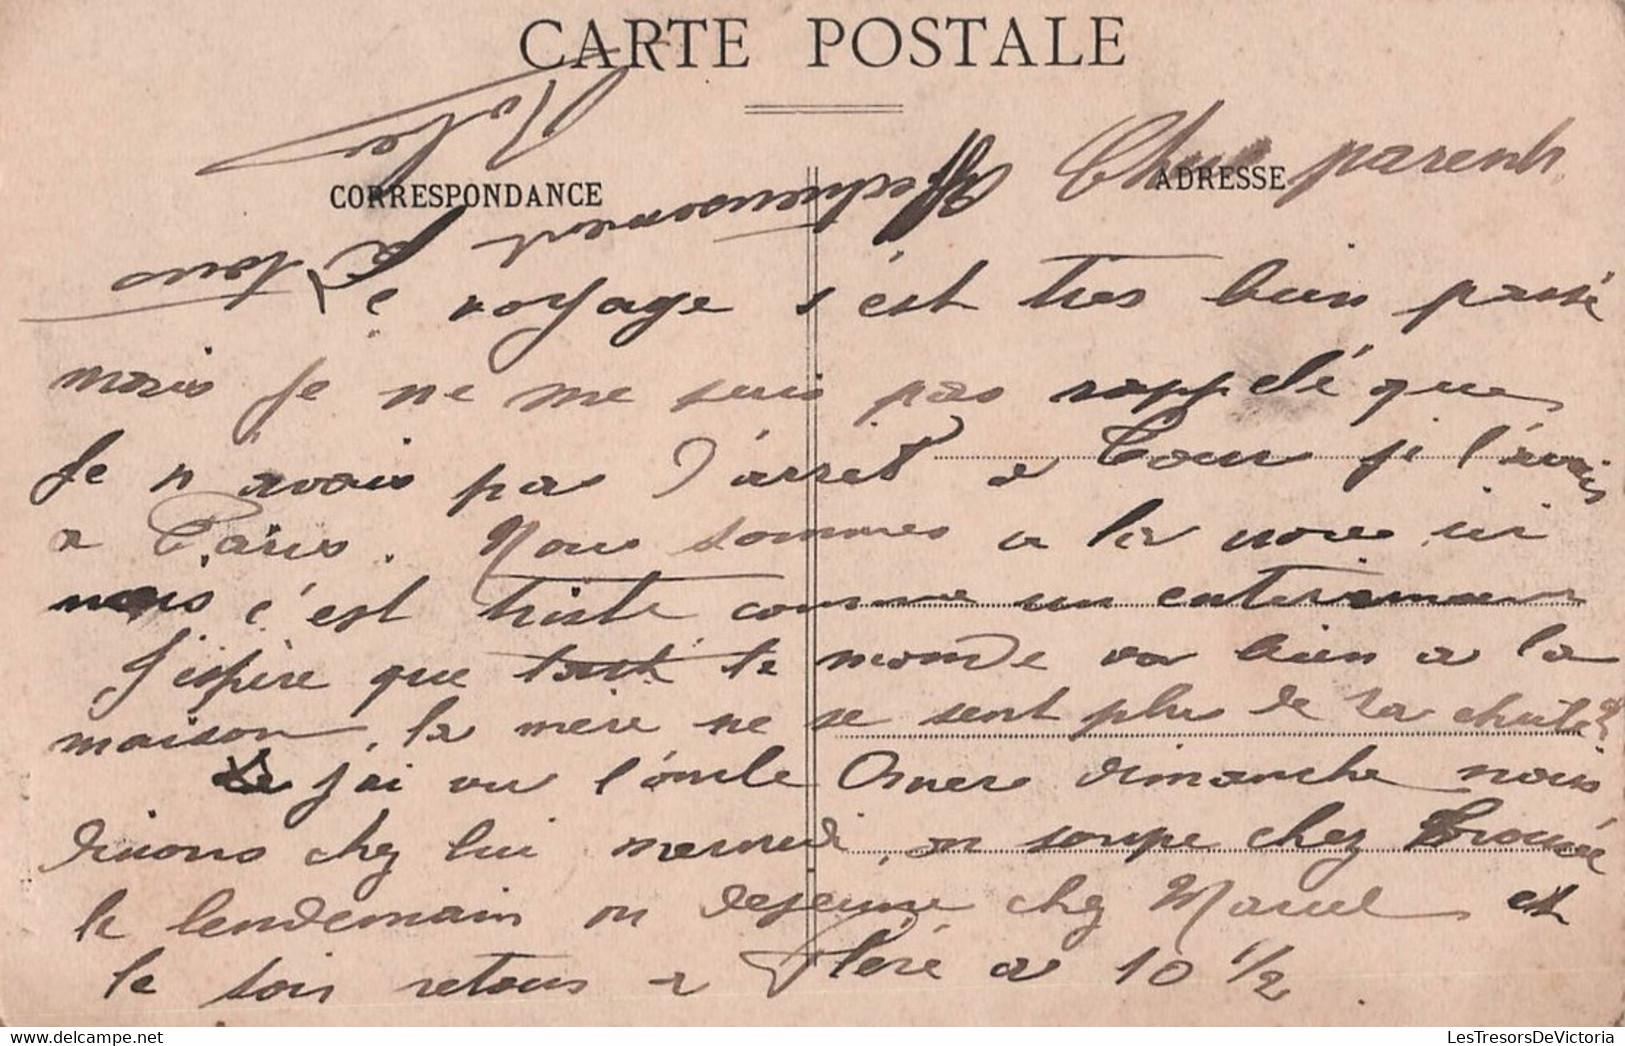 CARTE POSTALE
CORRESPONDANCE
ADRESSE
Chers parents
Le voyage s'est tres bien passé
mais je ne me suis pas rappelé que
Je n'avais pas d'arret a Tour je l'avais
a Paris. Nous sommes a la noce ici
mais c'est triste comme un enterrement
J'espère que tout le monde va bien a la
maison, la mère ne se sent plus de sa chute
j'ai vu l'oncle Omer dimanche nous
dinons chez lui mercredi, on soupe chez
le lendemain on dejeune chez Marcel et
le soir retour a Fléré a 10 1/2
Affectueusement
à tous
LesTresorsDeVictoria.com